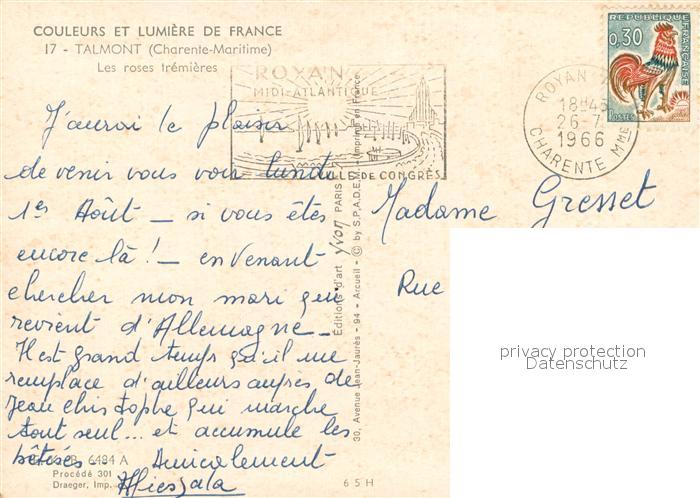 COULEURS ET LUMIÈRE DE FRANCE
17 - TALMONT (Charente-Maritime)
Les roses trémières
J'aurai le plaisir
de venir vous voir lundi
1er Août - si vous êtes
encore là ! - en venant
chercher mon mari qui
revient d'Allemagne -
Il est grand temps qu'il me
remplace d'ailleurs auprès de
Jean Christophe qui marche
tout seul... et accumule les
bêtises - Amicalement
6484 A
Procédé 301
Draeger, Imp.
6 5 H
Editions d'art yvon PARIS
30, Avenue Jean-Jaurès - 94 - Arcueil - © by S.P.A.D.E.M. - Imprimé en France
ROYAN
MIDI-ATLANTIQUE
VILLE DE CONGRÈS
ROYAN
18H45
26-7
1966
CHARENTE Mme
REPUBLIQUE
FRANÇAISE
0,30
POSTES
Madame Gresset
Rue
privacy protection
Datenschutz